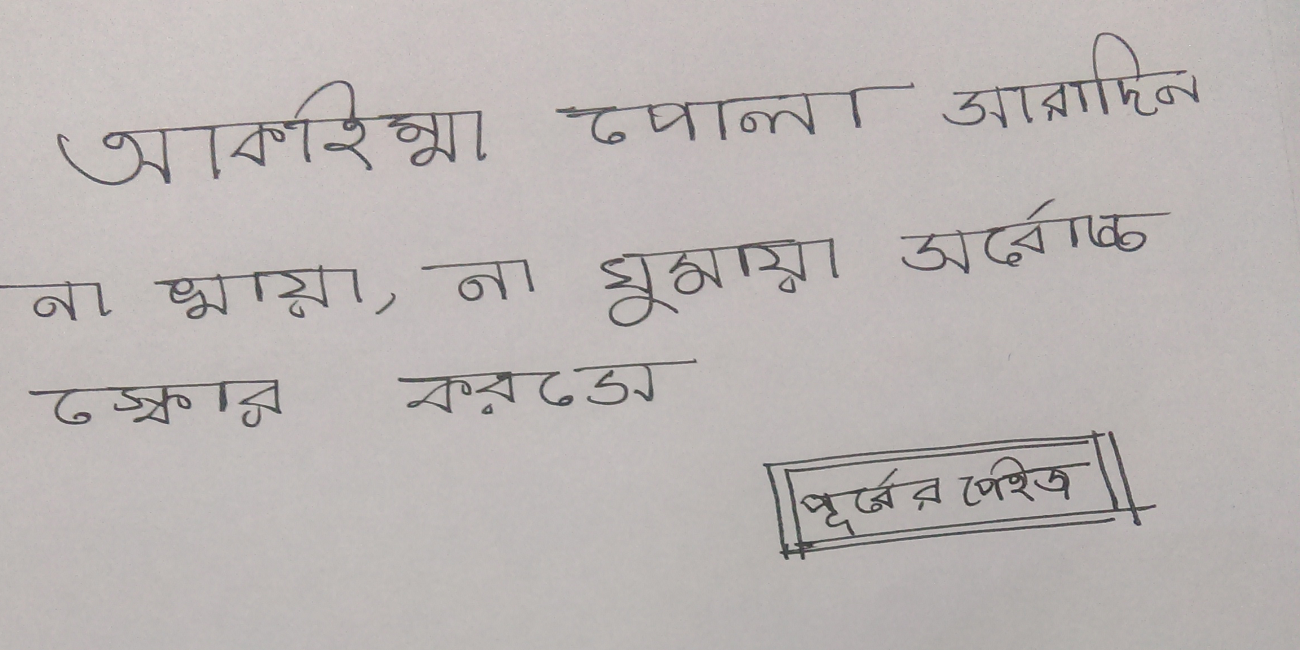 আকাইম্মা পোলা সারাদিন
না খায়া, না ঘুমায়া সর্বোচ্চ
স্কোর করসে
পূর্বের পেইজ